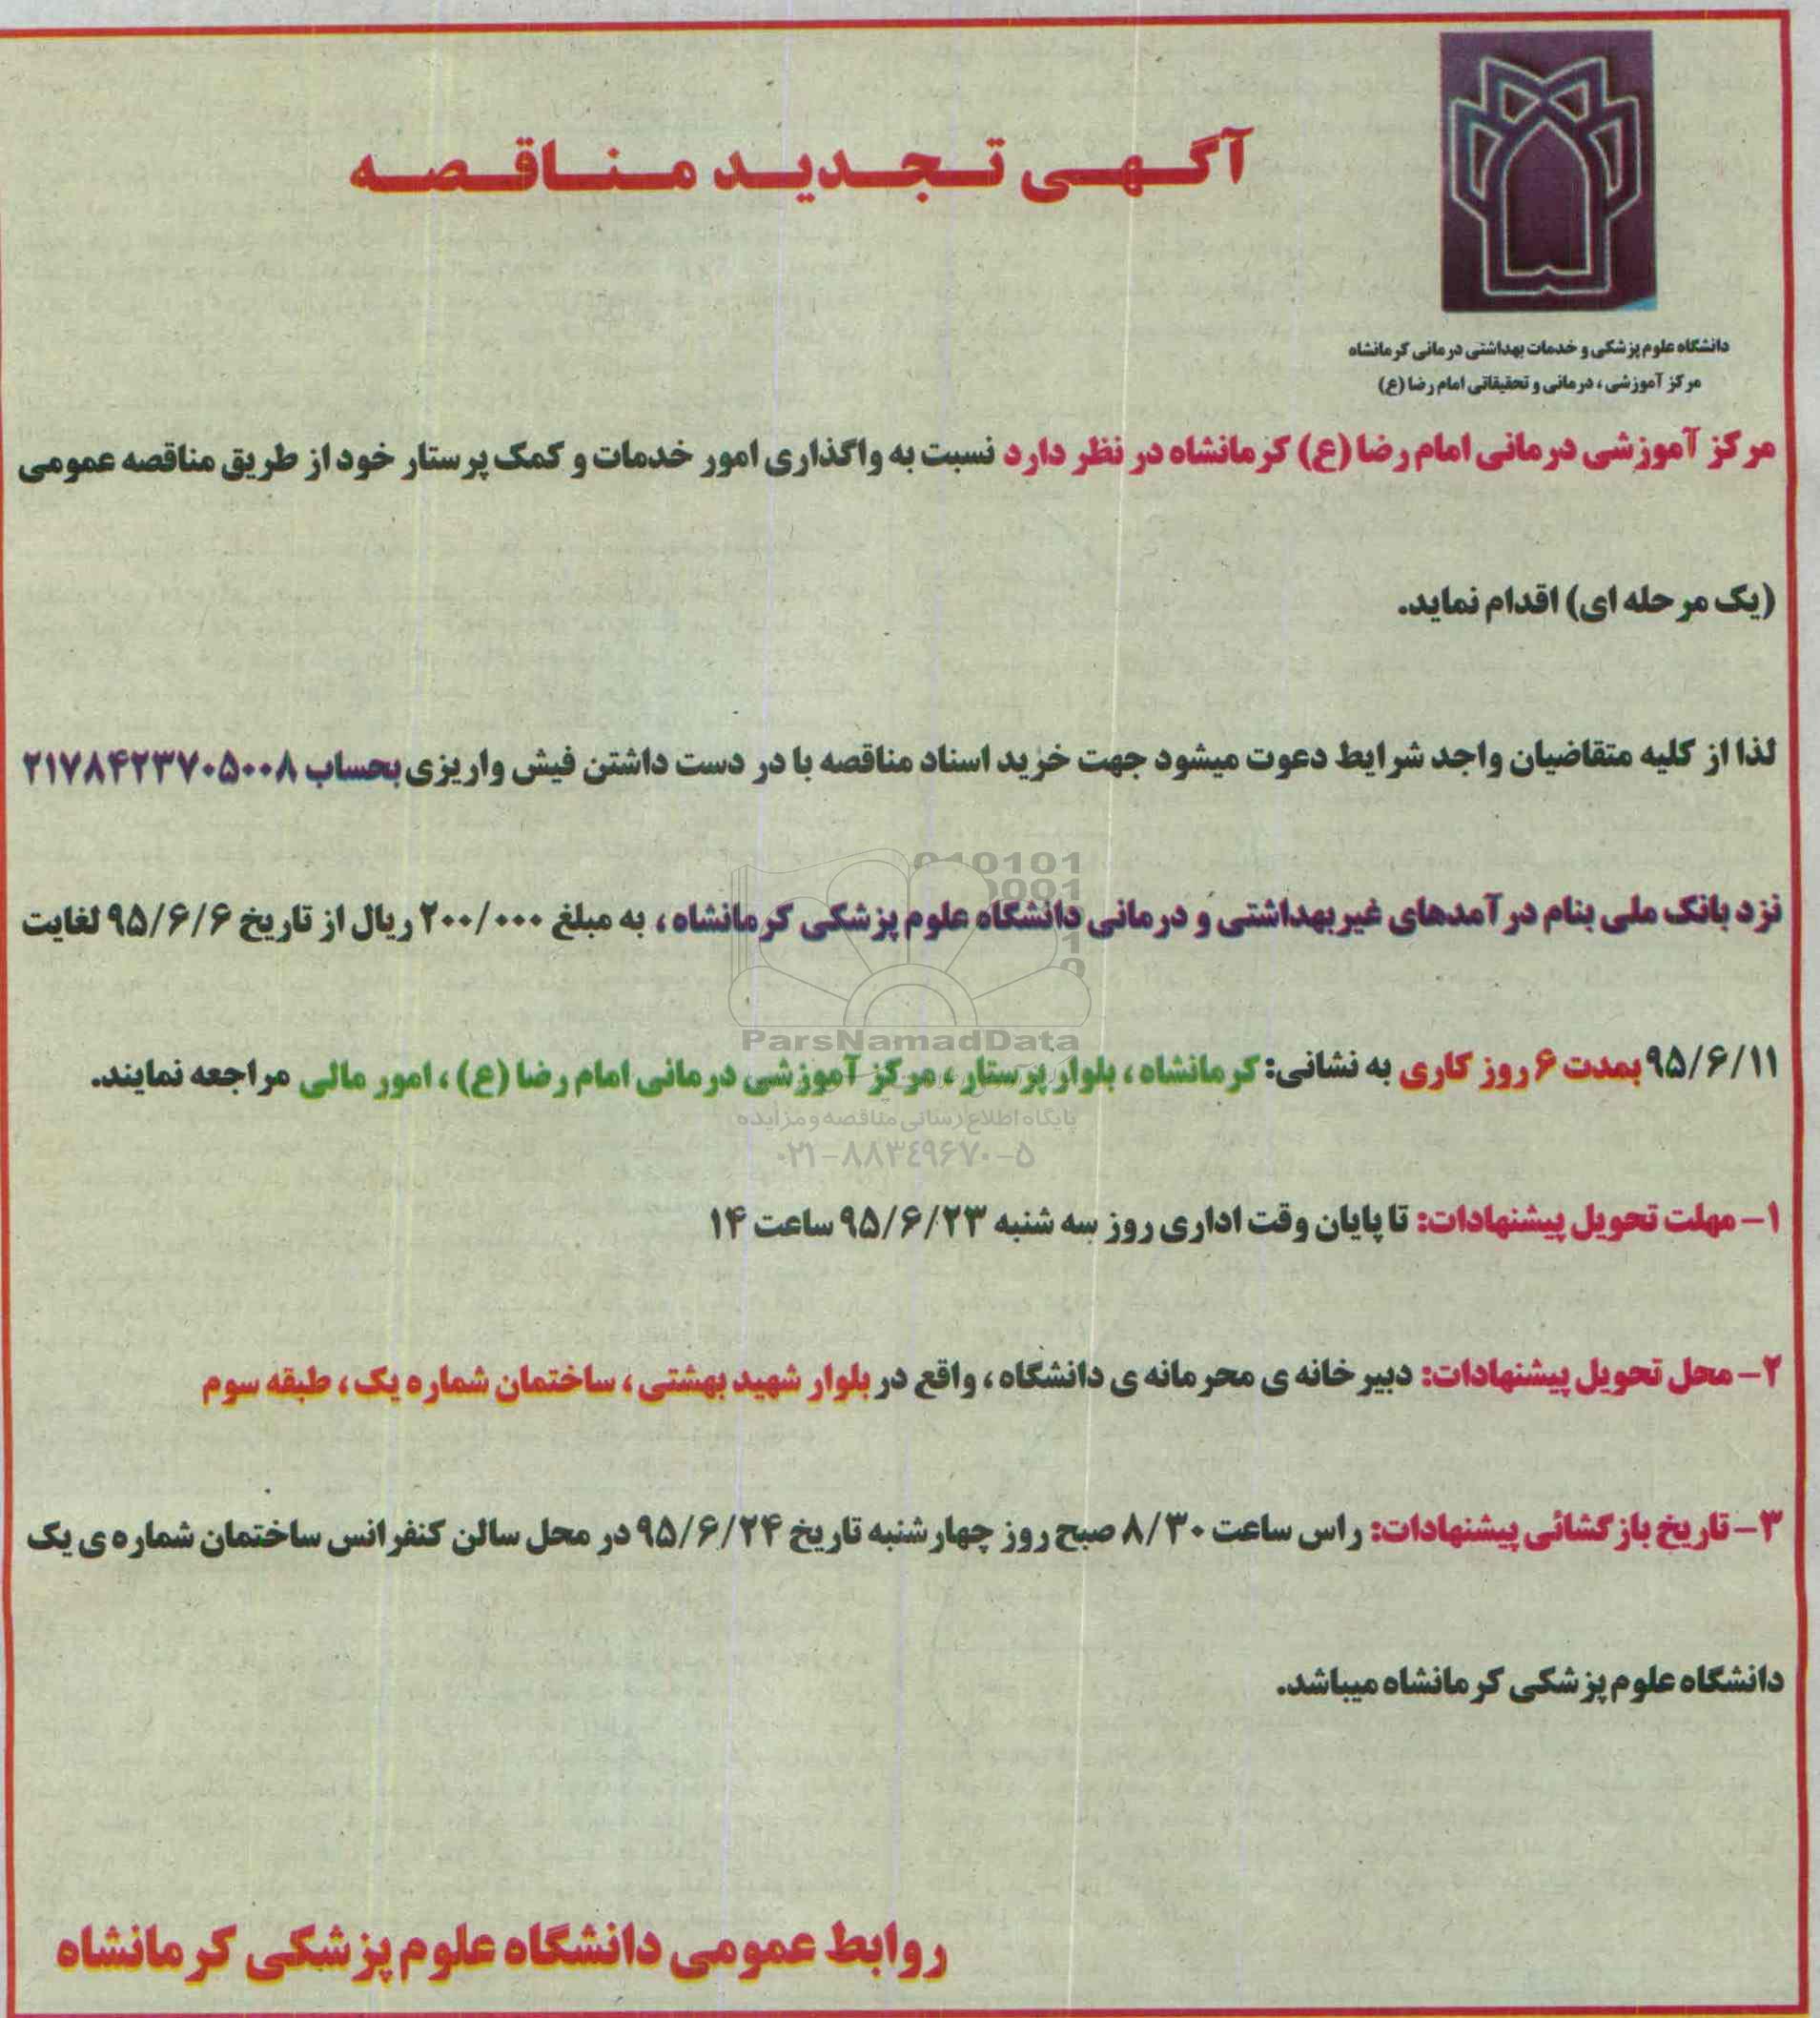 آگهی تجدید مناقصه
دانشگاه علوم پزشکی و خدمات بهداشتی درمانی کرمانشاه
مرکز آموزشی، درمانی و تحقیقاتی امام رضا (ع)
مرکز آموزشی درمانی امام رضا (ع) کرمانشاه در نظر دارد نسبت به واگذاری امور خدمات و کمک پرستار خود از طریق مناقصه عمومی
(یک مرحله ای) اقدام نماید.
لذا از کلیه متقاضیان واجد شرایط دعوت میشود جهت خرید اسناد مناقصه با در دست داشتن فیش واریزی بحساب ۲۱۷۸۴۲۳۷۰۵۰۰۸
نزد بانک ملی بنام درآمدهای غیربهداشتی و درمانی دانشگاه علوم پزشکی کرمانشاه، به مبلغ ۲۰۰/۰۰۰ ریال از تاریخ ۹۵/۶/۶ لغایت
۹۵/۶/۱۱ بمدت ۶ روز کاری به نشانی: کرمانشاه، بلوار پرستار، مرکز آموزشی درمانی امام رضا (ع)، امور مالی مراجعه نمایند.
۱- مهلت تحویل پیشنهادات: تا پایان وقت اداری روز سه شنبه ۹۵/۶/۲۳ ساعت ۱۴
۲- محل تحویل پیشنهادات: دبیرخانه ی محرمانه ی دانشگاه، واقع در بلوار شهید بهشتی، ساختمان شماره یک، طبقه سوم
۳- تاریخ بازگشائی پیشنهادات: راس ساعت ۸/۳۰ صبح روز چهارشنبه تاریخ ۹۵/۶/۲۴ در محل سالن کنفرانس ساختمان شماره ی یک
دانشگاه علوم پزشکی کرمانشاه میباشد.
روابط عمومی دانشگاه علوم پزشکی کرمانشاه
ParsNamadData
پایگاه اطلاع رسانی مناقصه و مزایده
۰۲۱-۸۸۳۴۹۶۷۰-۵